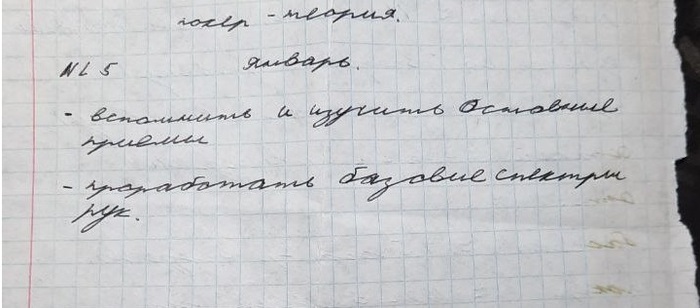 покер - теория.
NL 5 январь.
- вспомнить и изучить основные
приемы
- проработать базовые спектры
рук.